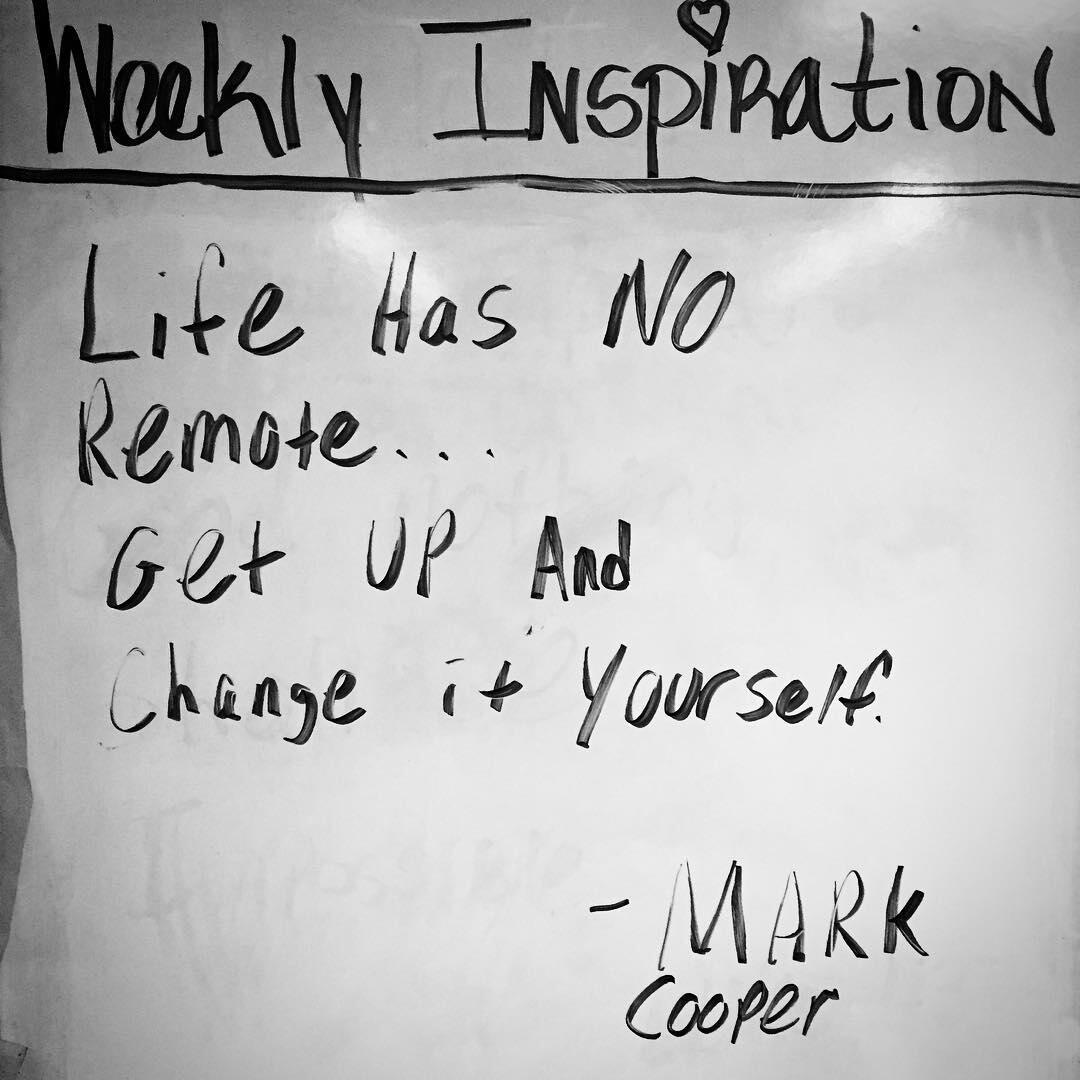 Weekly Inspiration
Life Has NO
Remote...
Get UP And
Change it Yourself.
- MARK
Cooper